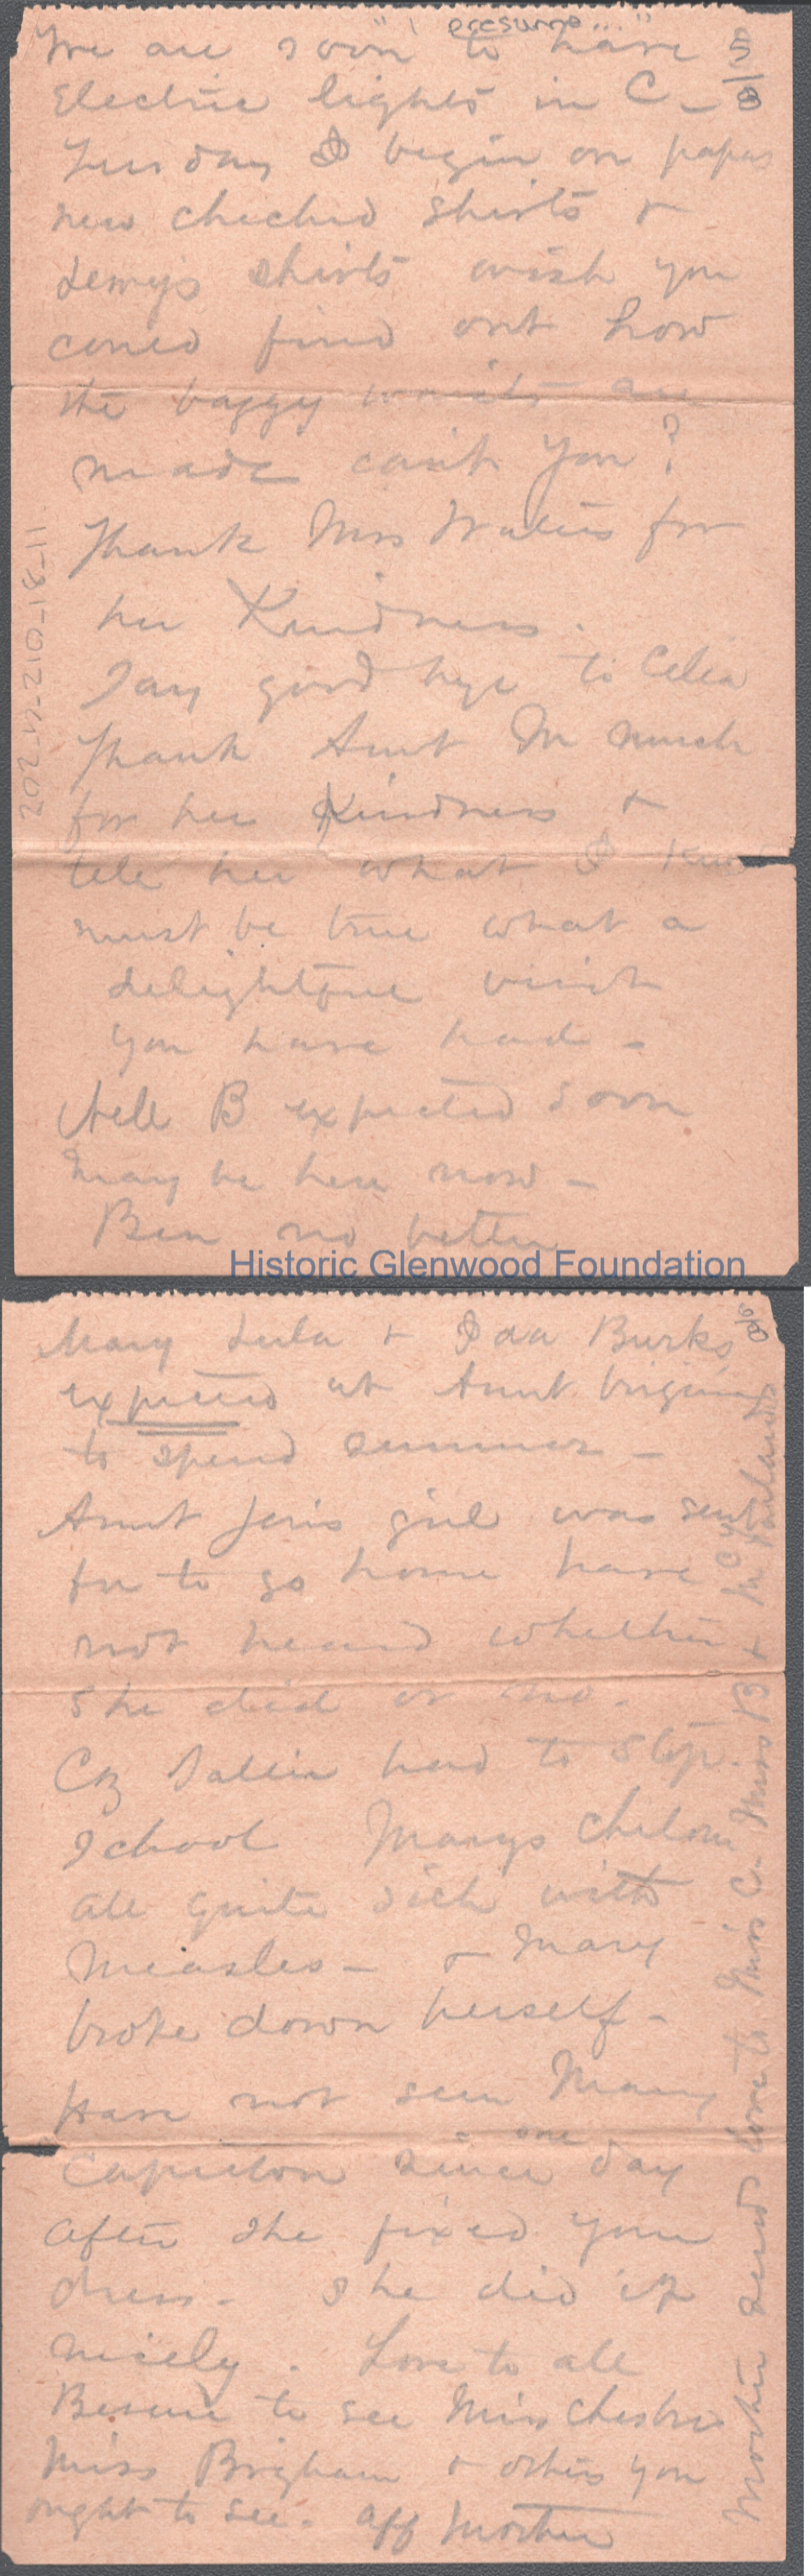 "I presume..."
We are soon to have
5/8
Electric lights in C -
Tuesday I begin on papas
new checked shirts &
shirts wish you
could find out how
the baggy waists are
made can't you?
Thank Mrs for
her Kindness.
Say good bye to Celia
Thank Aunt M much
for her Kindness &
tell her what I know
must be true what a
delightful visit
you have had -
Nell B expected soon
May be here now -
Ben no better
202-n-210-18-11
Historic Glenwood Foundation
Mary Lula & Ida Burks
expected at Aunt Virginias
to spend summer -
Aunt girl was sent
for to go home have
not heard whether
she did or no.
Cz Sallie had to stop
School Marys children
all quite sick with
Measles - & Mary
broke down herself -
Have not seen Mary
Caperton since one day
after she fixed your
dress. She did it
nicely. Love to all
Be sure to see Miss
Miss Brigham & others you
ought to see. Aff Mother
Mother sends love to Miss C. Miss B &